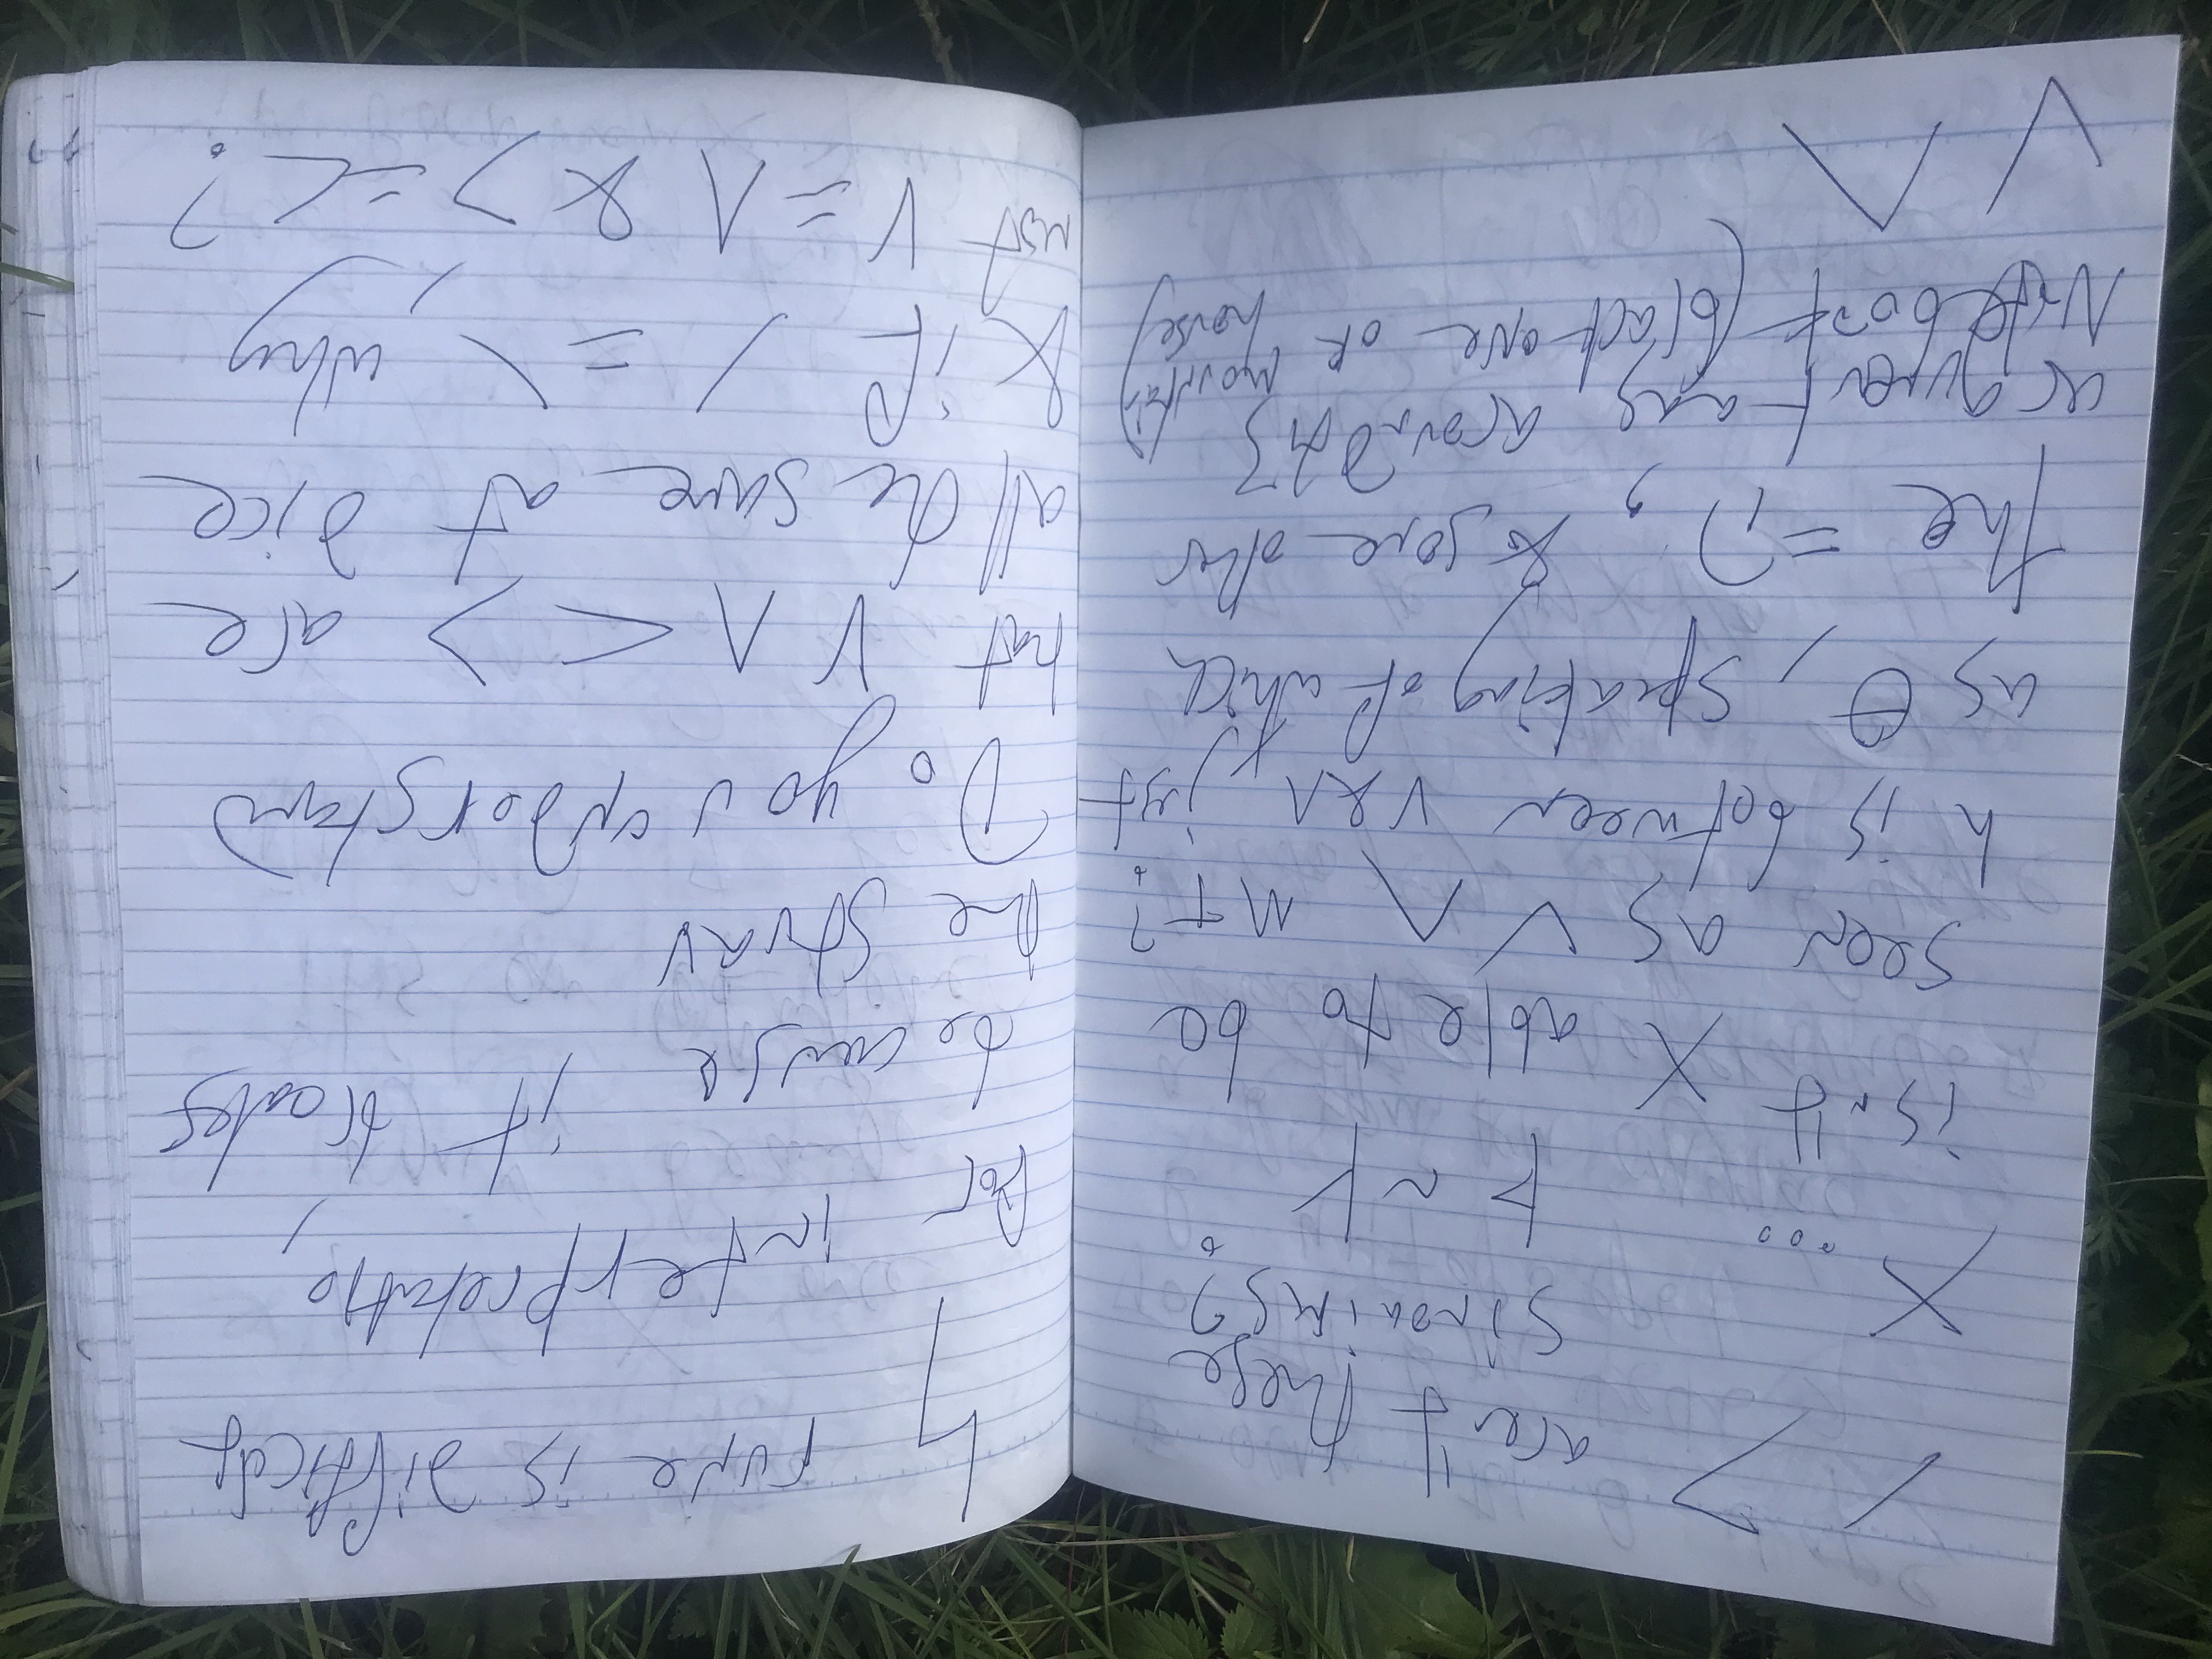 / > aren't these
X ... sinonims?
isn't X able to be
seen as V Λ MT?
h is between V & Λ just
as θ, speaking of which
the =), & some other
argument was around this
Notebook (black one or mountain house)
V Λ
rune is difficult
for interpretatio,
because it breaks
the strav
Do you understand
hat V Λ < > are
all the same at dice
& if / = \ why,
not V = Λ & > = <?